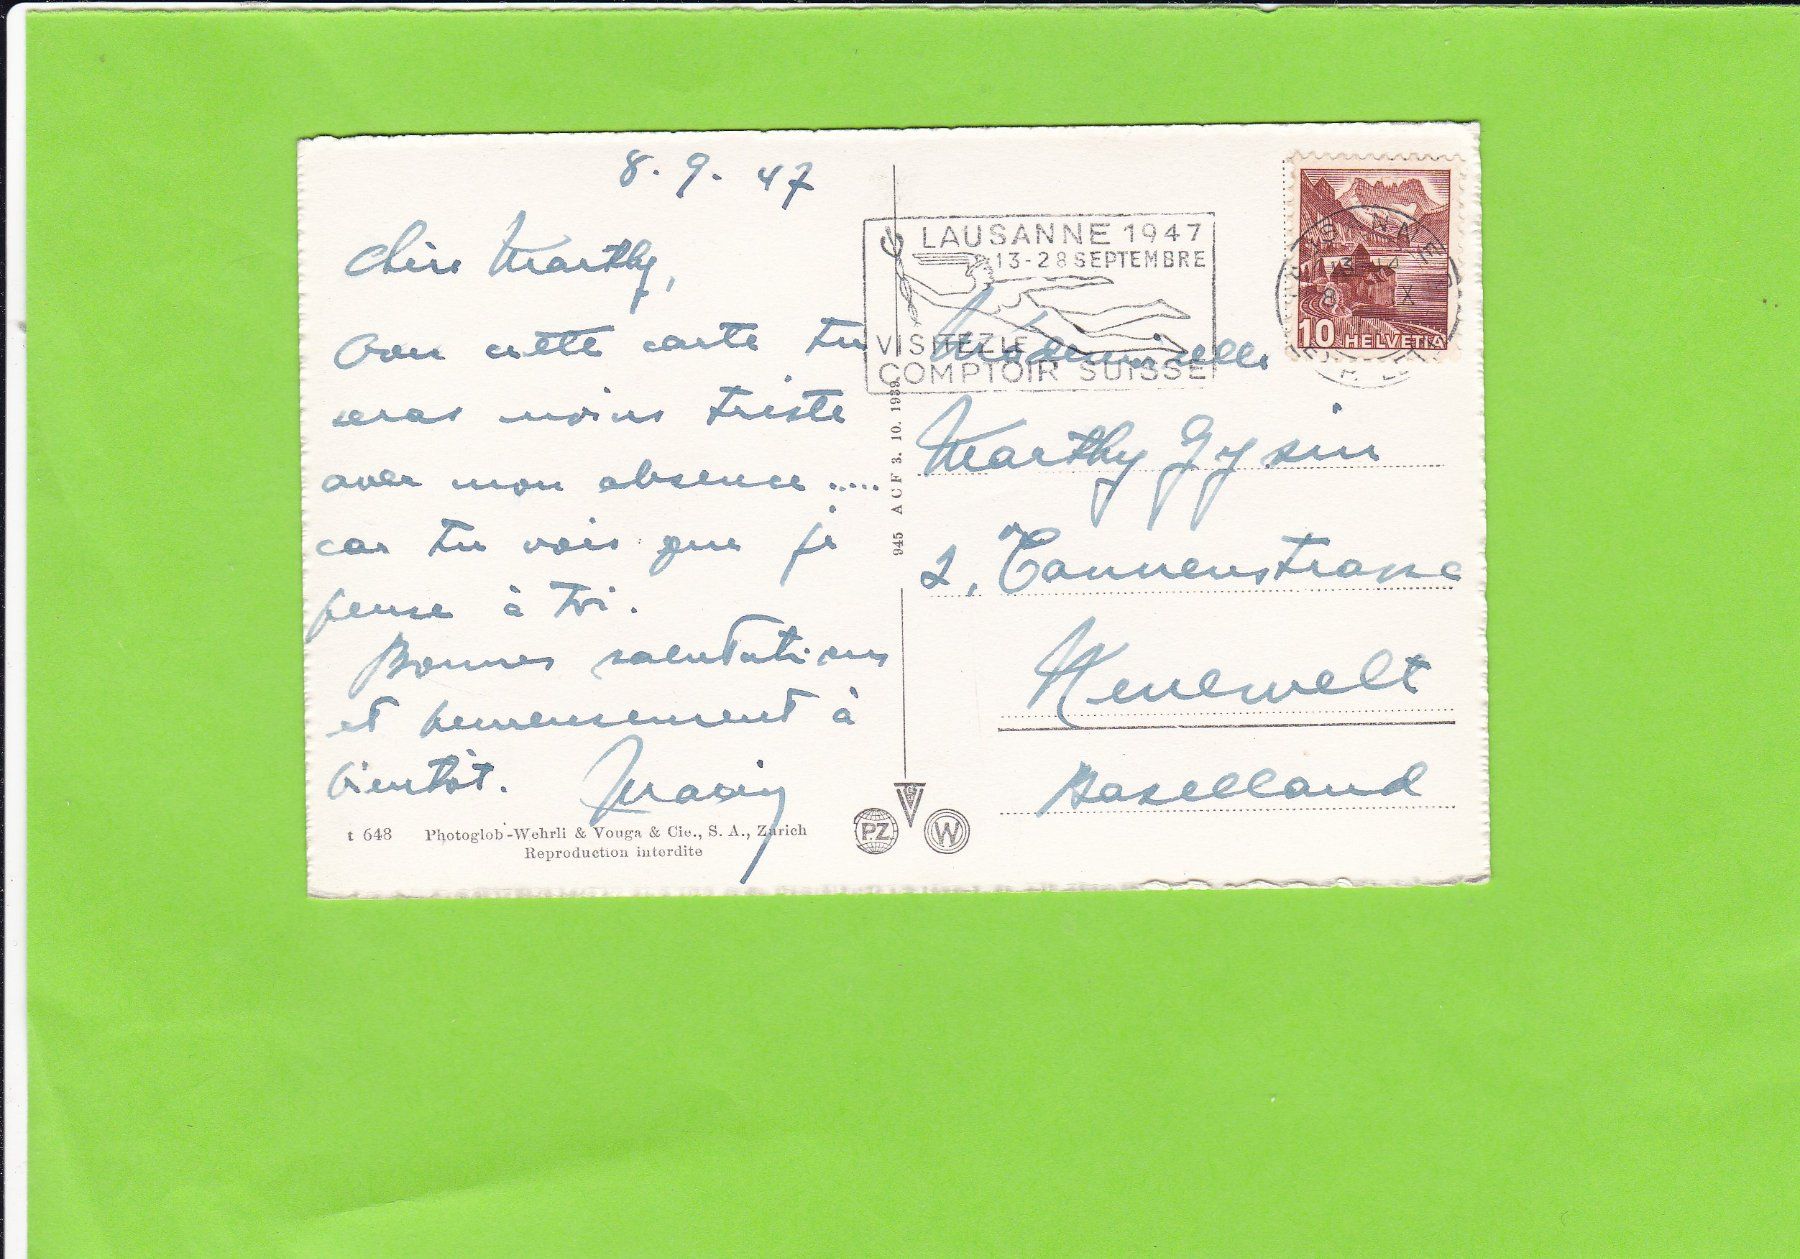 8. 9. 47
Chère Marthy,
Avec cette carte tu
seras moins triste
avec mon absence .....
car tu vois que je
pense à toi.
Bonnes salutations
et heureusement à
bientôt.
t 648 Photoglob-Wehrli & Vouga & Cie., S. A., Zürich
Reproduction interdite
945 A C F 3. 10. 1939
LAUSANNE 1947
13-28 SEPTEMBRE
VISITEZ LE
COMPTOIR SUISSE
10 HELVETIA
Mademoiselle
Marthy Gysin
2, Tannenstrasse
Neuewelt
Baselland
PZ
W